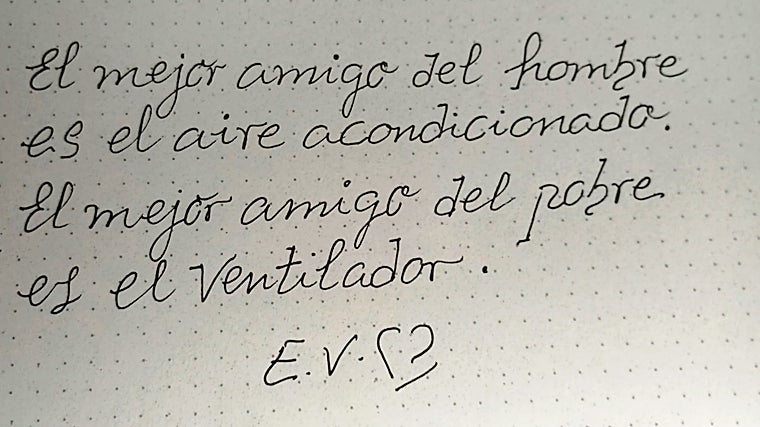 El mejor amigo del hombre
es el aire acondicionado.
El mejor amigo del pobre
es el ventilador.
E.V.